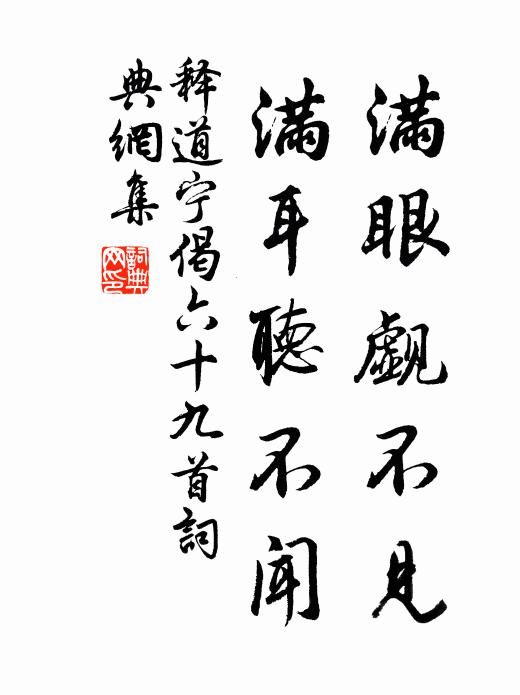 滿眼覷不見
滿耳聽不聞
释道宁偈六十九首詞
典網集
詞典
网印